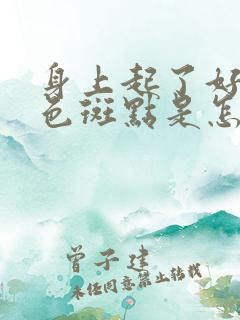 身上起了好
色斑點是怎
曾子建
未经同意禁止转载